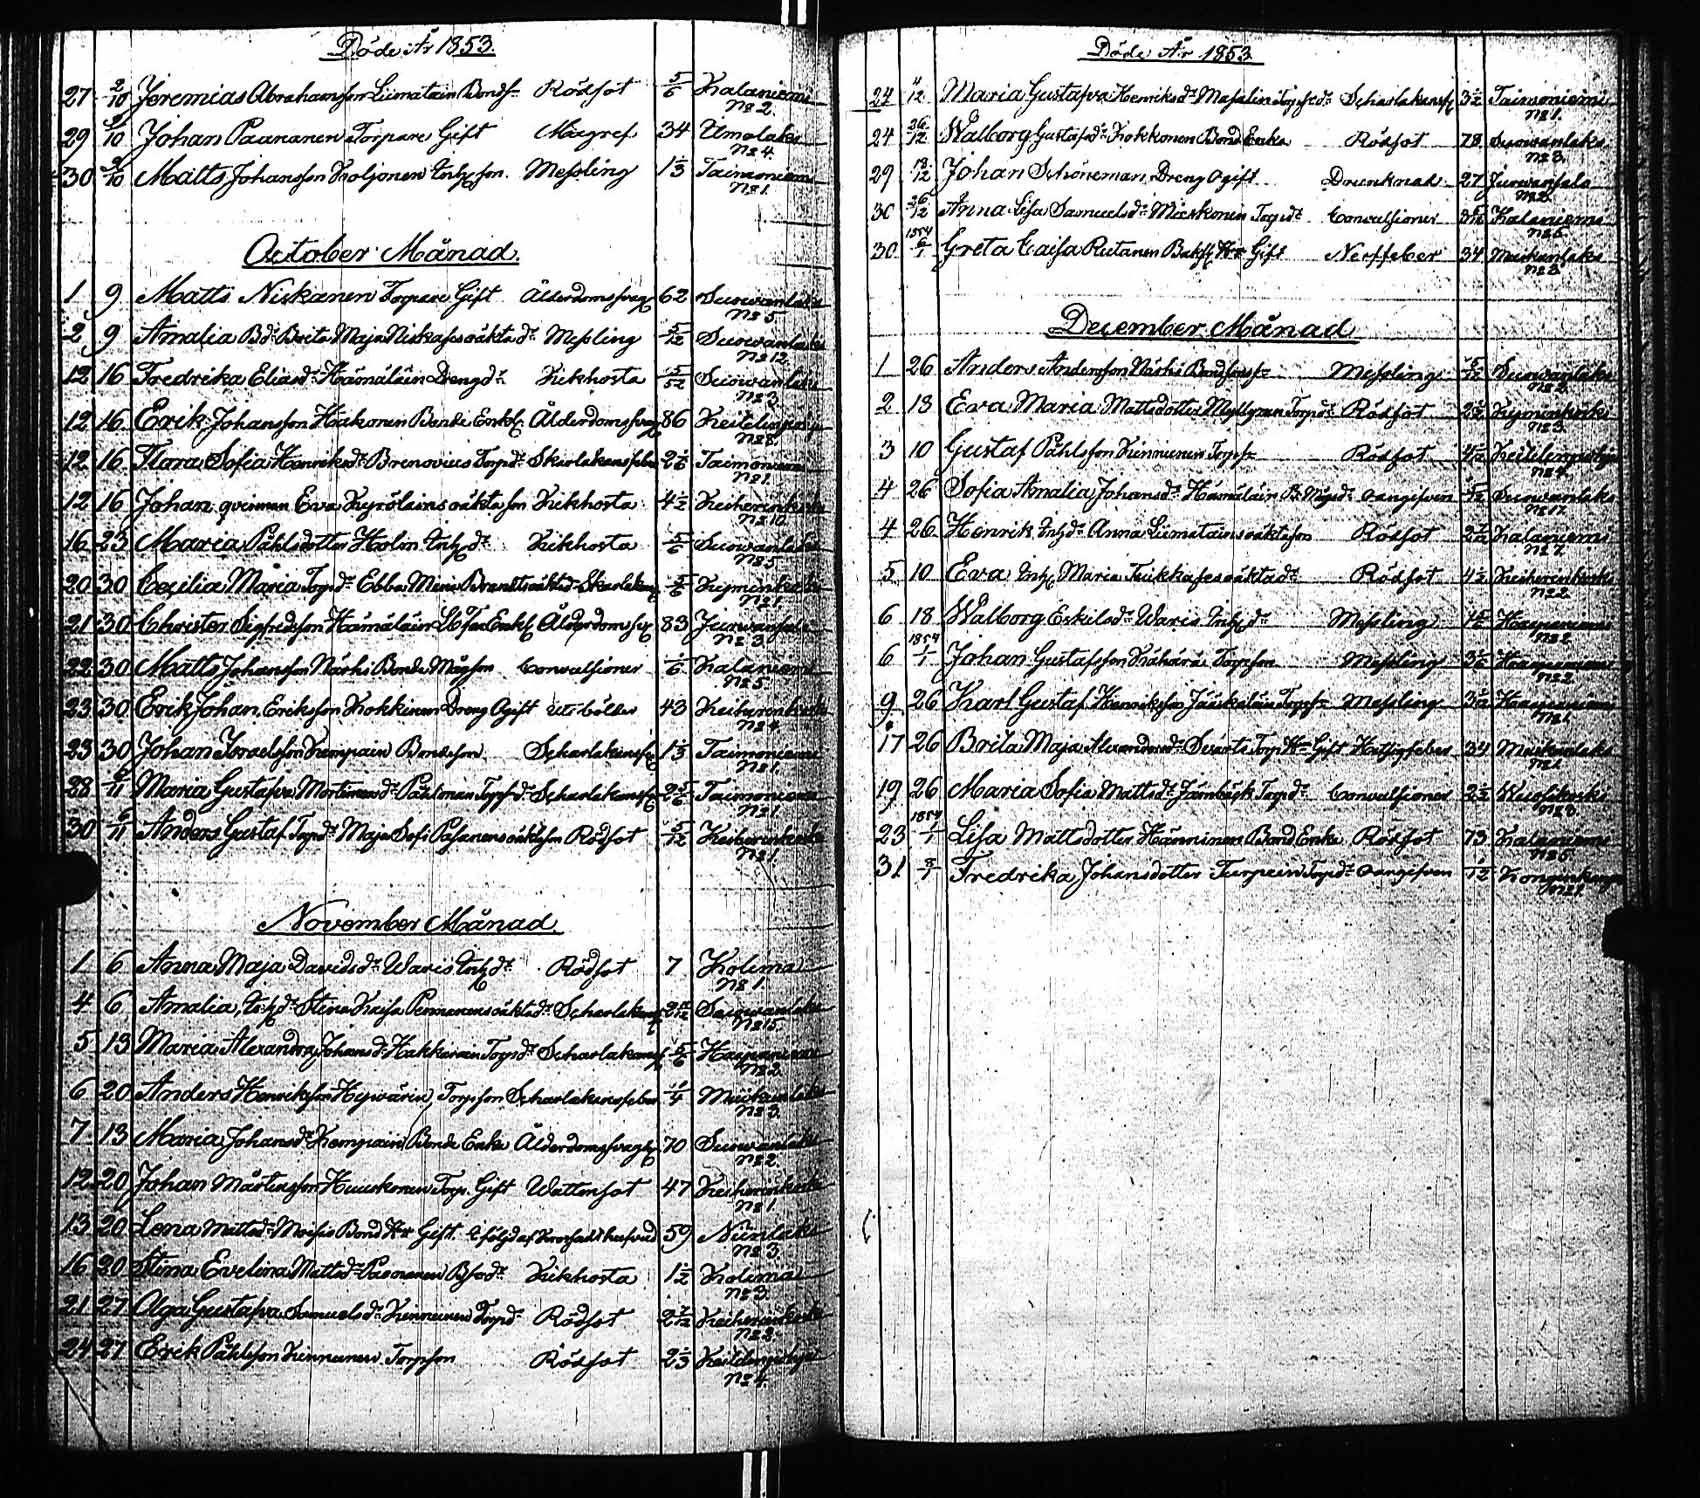 Döde År 1853.
27 2/10 Jeremias Abrahamsson Liimatain Bondes. Rödsot 5/6 Kalaniemi
No 2.
29 9/10 Johan Paananen Torpare Gift Maagref 34 Elmolaks
No 4.
30 9/10 Matts Johansson Koljonen Inh. son. Messling 1 1/3 Taimoniemi
No 1.
October Månad.
1 9 Matts Niskanen Torpare Gift Ålderdomssvag 62 Suowanlaks
No 5.
2 9 Amalia Bd. Brita Maja Niskas oäkta dr. Messling 5/12 Suowanlaks
No 12.
12 16 Fredrika Eliasdr. Hämäläin Drengdr. Kikhosta 5/52 Suowanlaks
No 3.
12 16 Erik Johansson Häkonen Bonde Enkl. Ålderdomssvag 86 Keitelenpohja
No 8.
12 16 Flora Sofia Henriksdr. Brenovius Torpdr. Skarlakansfeber 2 1/6 Taimoniemi
No 1.
12 16 Johan qvinnan Eva Kyröläins oäkta son Kikhosta 4 1/2 Keiherinkoski
No 10.
16 23 Maria Påhlsdotter Holm Inh. dr. Kikhosta 5/6 Suowanlaks
No 5.
20 30 Cecilia Maria Torpdr. Ebba Maria Brandts oäkta dr. Skarlakansf. 5/6 Kyminkoski
No 1.
21 30 Christer Sigfridsson Hämäläin Enkl. Ålderdomssv. 83 Jurwansalo
No 3.
22 30 Matts Johansson Närhi Bonde Mågson Convulsioner 1/6 Kalaniemi
No 5.
23 30 Erik Johan Eriksson Kokkinen Dreng Ogift 43 Keiherinkoski
No 4.
23 30 Johan Israelsson Kempain Bondeson. Scharlakansf. 1 1/3 Taimoniemi
No 1.
28 6/11 Maria Gustafva Mortensdr. Påhlman Torpdr. Scharlakansf. 2 5/6 Taimoniemi
No 1.
30 6/11 Anders Gustaf Torpdr. Maja Sofi Pasanens oäkta son Rödsot 5/12 Keiherinkoski
No 1.
November Månad
1 6 Anna Maja Davidsdr. Waris Inh. dr. Rödsot 7 Kolima
No 1.
4 6 Amalia, Inh. dr. Stina Kaisa Pennanens oäkta dr. Scharlakansf. Suowanlaks
No 15.
5 13 Maria Alexandra Johansdr. Hakkarain Torpdr. Scharlakansf. 5/6 Haapaniemi
No 2.
6 20 Anders Henriksson Hywärin, Torpson Scharlakansfeber 1/4 Muikunlaks
No 3.
7 13 Maria Johansdr. Kempain Bonde Enka Ålderdomssvagh. 70 Suowanlaks
No 2.
12 20 Johan Mårtensson Huuskonen Torp. Gift Wattensot 47 Keiherinkoski
No 1.
13 20 Lena Mattsdr. Moisio Bond Hr. Gift. i följd af krossadt hufvud 59 Niinilaks
No 3.
16 20 Stina Evelina Mattsdr. Paananen Kikhosta 1 1/2 Kolima
No 3.
21 27 Olga Gustafva Samuelsdr. Kinnunen Torpdr. Rödsot Keiherinkoski
No 2.
24 27 Erik Påhlsson Kinnunen Torpson Rödsot 2 1/3 Keitelenpohja
No 4.
Döde År 1853
24 4/12 Maria Gustafva Henriksdr. Massalin Torpdr. Scharlakansf. 3 1/2 Taimoniemi
No 1.
24 26/12 Walborg Gustafsdr. Kokkonen Bond Enka Rödsot 78 Suowanlaks
No 3.
29 18/12 Johan Schöneman, Dreng ogift Drunknat 27 Jurwansalo
No 2.
30 26/12 Anna Lisa Samuelsdr. Markonen Torpdr. Convulsioner Kalaniemi
No 5.
30 1854 6/1 Greta Caisa Rutanen Gift Nerffeber 34 Muikunlaks
No 3.
December Månad
1 26 Anders Andersson Närhi Messling 5/12 Suowanlaks
No 2.
2 18 Eva Maria Mattsdotter Myllynen Torpdr. Rödsot 2 1/2 Kyminkoski
No 3.
3 10 Gustaf Påhlsson Kinnunen Torps. Rödsot Keitelenpohja
No 4.
4 26 Sofia Amalia Johansdr. Hämäläin oangifven Suowanlaks
No 17.
4 26 Henrik Inh. dr. Anna Liimatains oäkta son Rödsot Kalaniemi
No 7.
5 10 Eva Inh. Maria Kukkases oäkta dr. Rödsot 4 1/2 Keiherinkoski
No 2.
6 18 Walborg Eskilsdr. Waris Inh. dr. Messling Haapaniemi
No 2.
6 1854 1/1 Johan Gustafsson Kähärä Torpson Messling 3 5/6 Haapaniemi
No 2.
9 26 Karl Gustaf Henriksson Jääskeläin Torps. Messling Haapaniemi
No 1.
17 26 Brita Maja Alexandersdr. Svarts Torp Hr. Gift Hetsigfeber 34 Muikunlaks
No 1.
19 26 Maria Sofia Mattsdr. Jämbäck Torpdr. Convulsioner 2 1/2 Wuoskoski
No 3.
23 1854 1/1 Lisa Mattsdotter Hänninen Bond Enka Rödsot 73 Kalaniemi
No 5.
31 Fredrika Johansdotter Turpein Torpdr. oangifven Konginkangas
No 1.